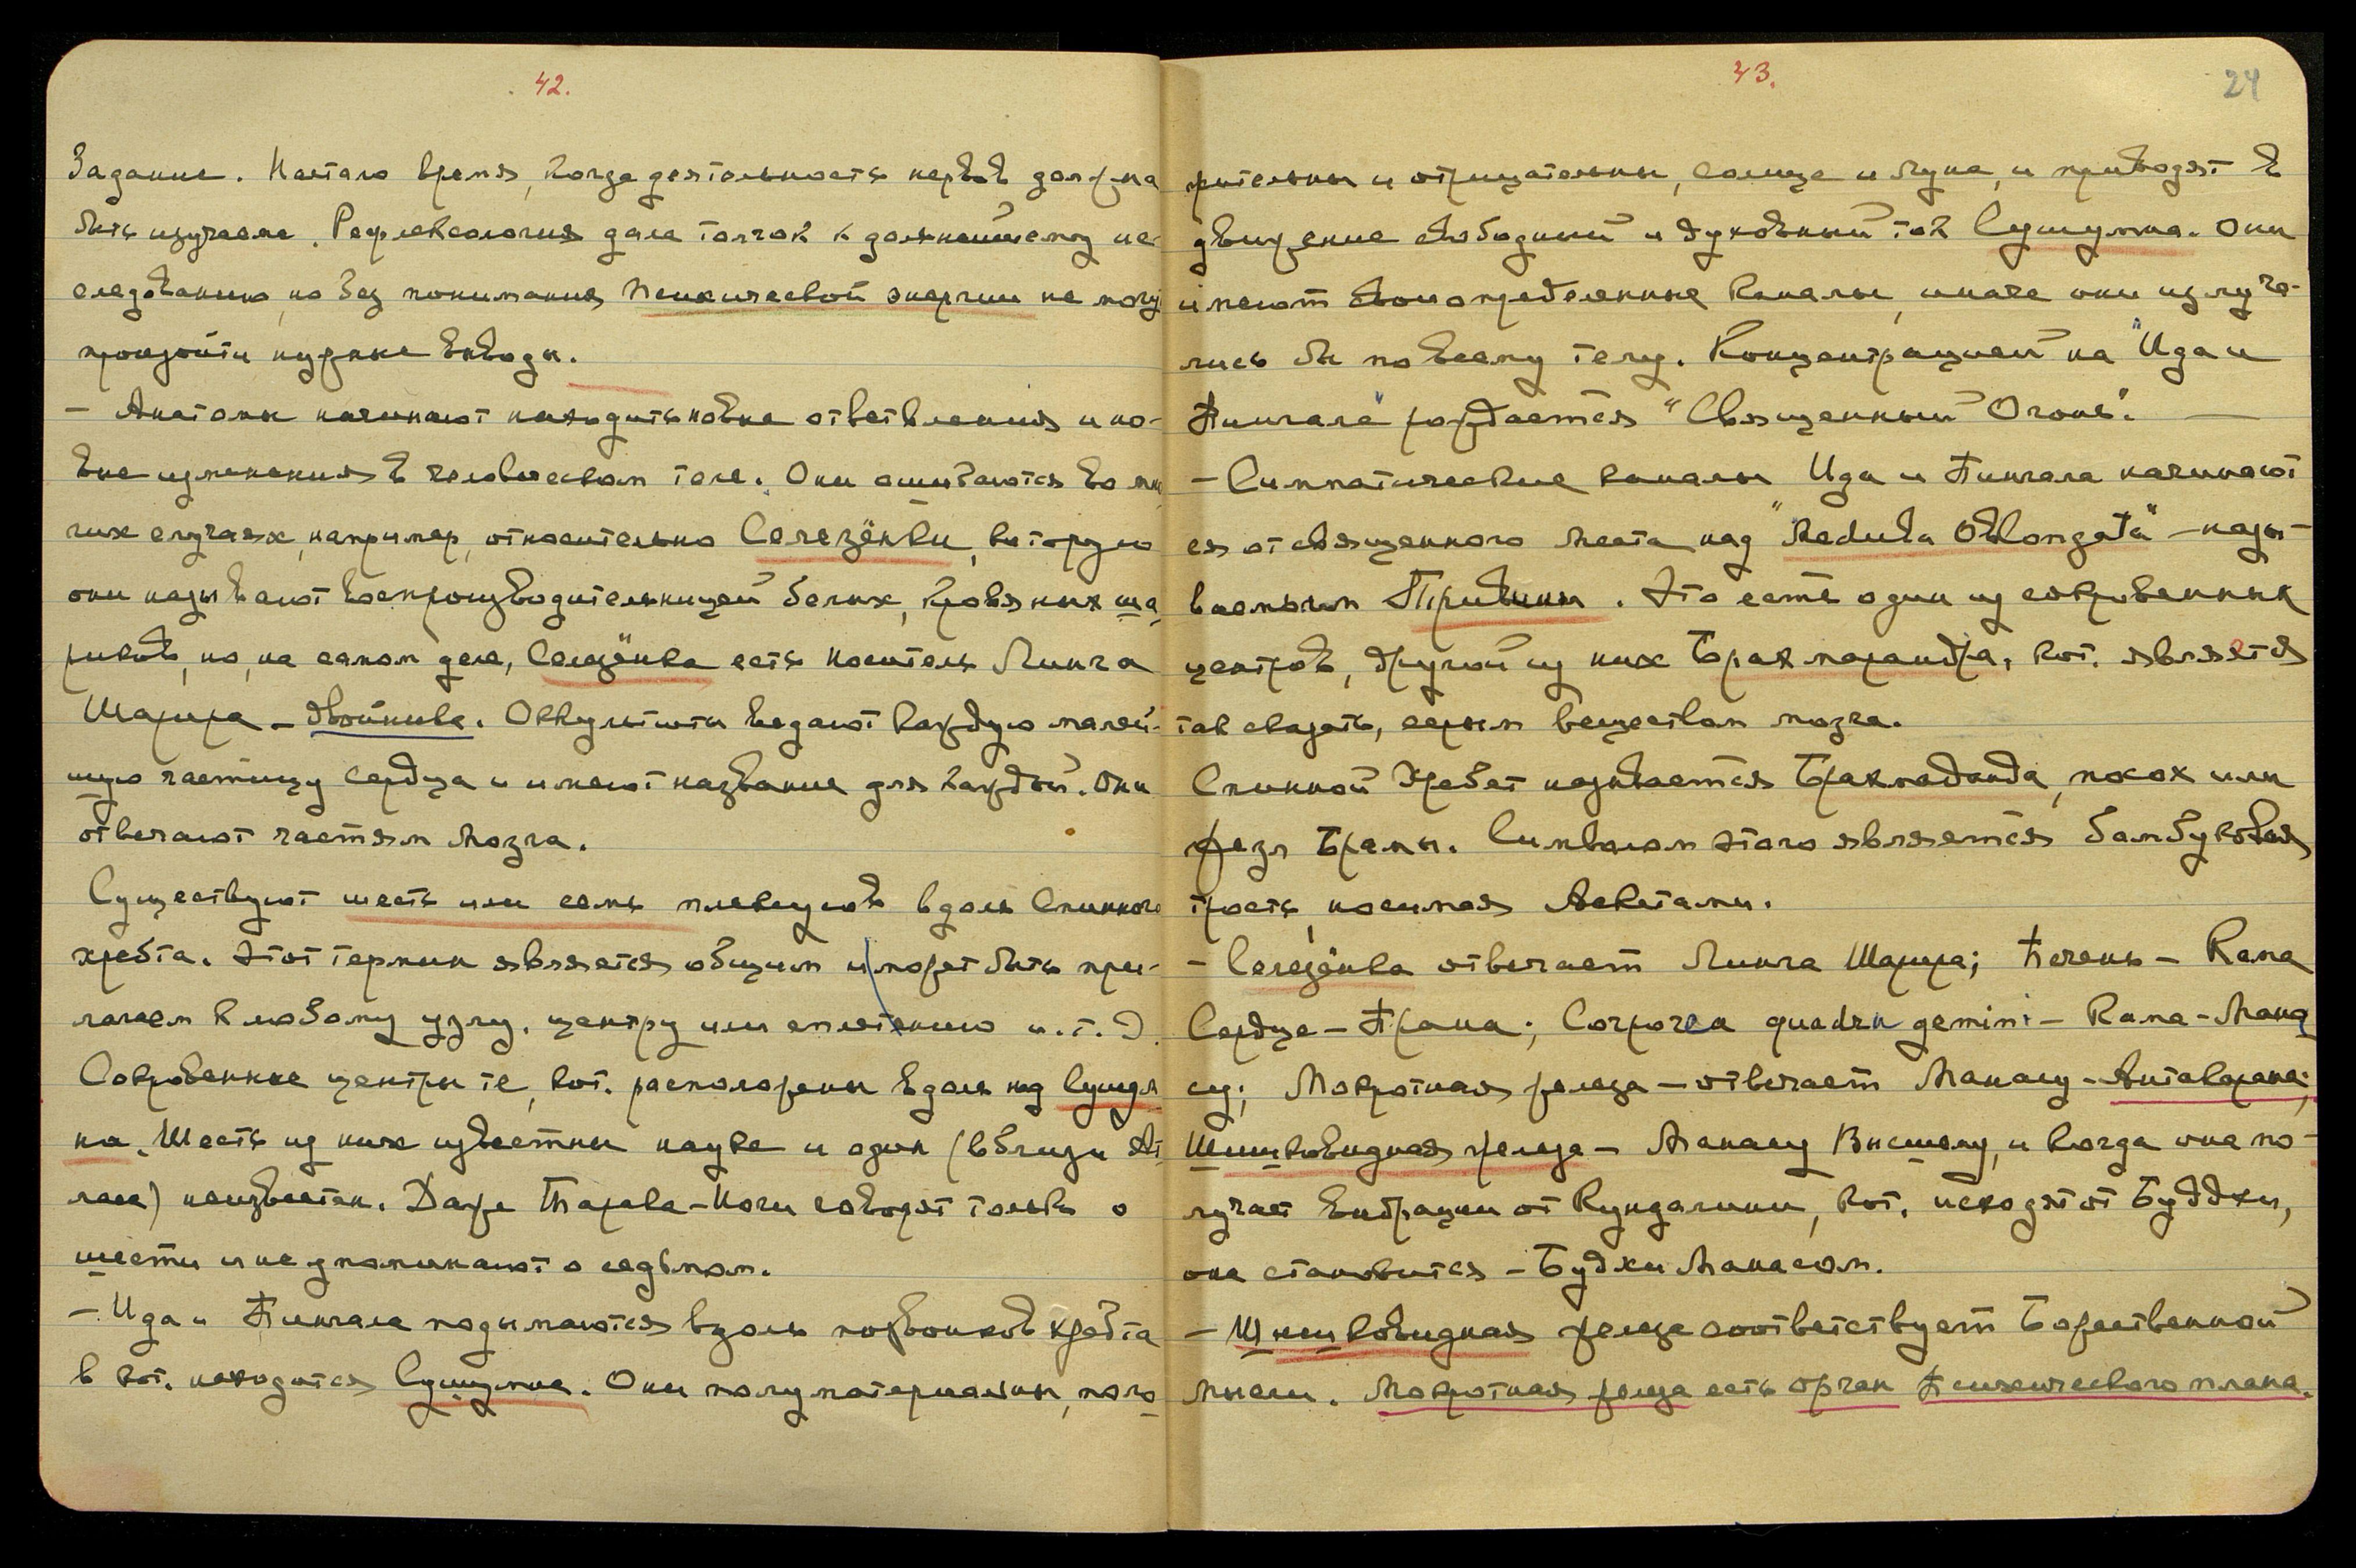 42.
Задание. Настало время, когда деятельность нервов должна
быть изучаема. Рефлексология дала толчок к дальнейшему ис-
следованию, но без понимания Психической энергии не могут
произойти нужные выводы.
– Анатомы начинают находить новые ответвления и но-
вые изменения в человеческом теле. Они ошибаются во мно
гих случаях, например, относительно Селезёнки, которую
они называют воспроизводительницей белых, кровяных ша
риков, но, на самом деле, Селезёнка есть Носитель Линга
Шарира – двойника. Оккультисты ведают каждую малей-
шую частицу сердца и имеют название для каждой. Они
отвечают частям мозга.
Существуют шесть или семь плексусов вдоль Спинного
хребта. Этот термин является общим и может быть при-
лагаем к любому узлу, центру или сплетению и.т.д.
Сокровенные центры те, кот. расположены вдоль над Сушум
на. Шесть из них известны науке и один (вблизи Ат
ласа) неизвестен. Даже Тарака-Йоги говорят только о
шести и не упоминают о седьмом.
– Ида и Пингала подымаются вдоль позвонков хребта
в кот. находится Сушумна. Они полуматериальны, поло
43.
24
жительны и отрицательны, солнце и луна, и приводят в
движение свободный и духовный ток Сушумна. Они
имеют свои определенные каналы, иначе они излуча-
лись бы по всему телу. Концентрацией на "Ида и
Пингале" рождается "Священный Огонь". –
– Симпатические каналы Ида и Пингала начинают
ся от священного места над "Medula Oblongata" – назы-
ваемым Тривени. Это есть один из сокровенных
центров, другой из них Брахмарандра, кот. является
так сказать, серым веществом мозга.
Спинной Хребет называется Брахмаданда, посох или
жезл Брамы. Символом этого является бамбуковая
трость, носимая Аскетами.
– Селезёнка отвечает Линга Шарира; Печень – Кама
Сердце – Прана; Corporea quadri gemini – Кама-Мана
су; Мокротная железа – отвечает Манасу-Антакарана;
Шишковидная железа – Манасу Высшему, и когда она по-
лучает вибрации от Кундалини, кот. исходят от Буддхи,
она становится – Будхи Манасом.
– Шишковидная железа соответствует Божественной
мысли. Мокротная железа есть орган Психического плана.